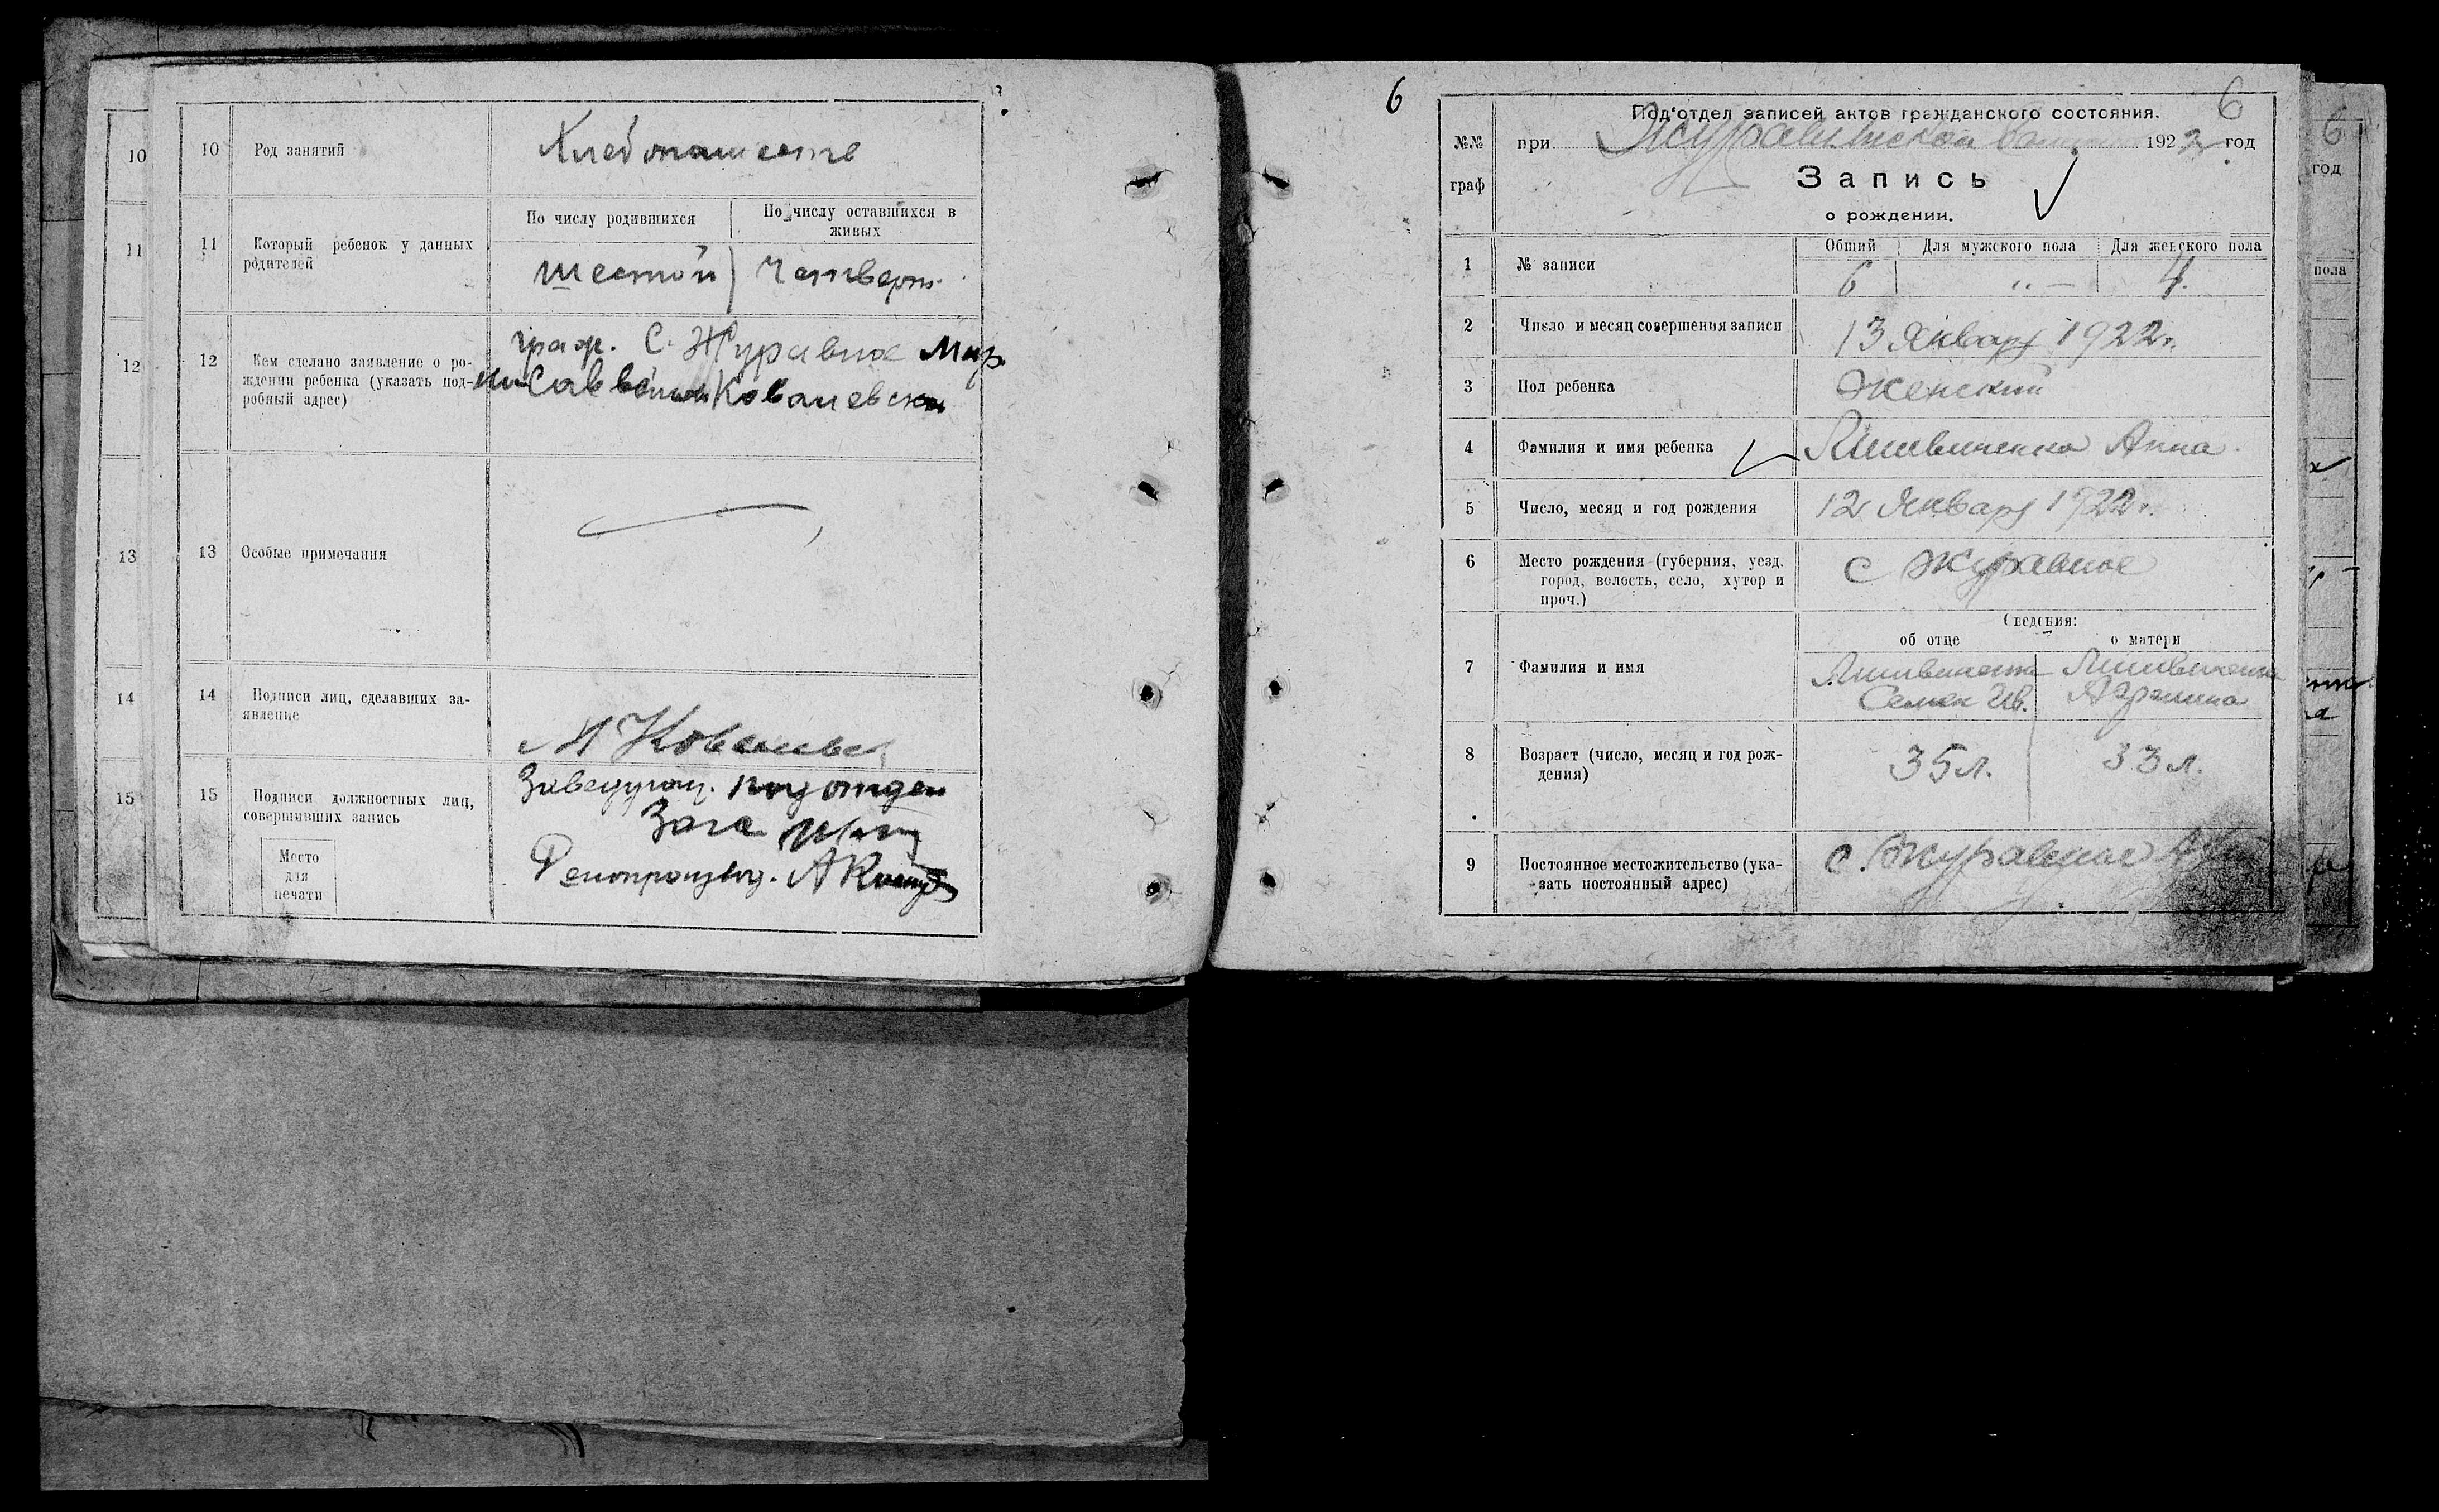 10
11
12
13
14
15
10 Род занятий Хлебопашеств
11 Который ребенок у данных родителей
По числу родившихся По числу оставшихся в живых
шестой Четверт.
12 Кем сделано заявление о ро-
ждении ребенка (указать под-
робный адрес)
граж. С. Журавное Мар
Ковалевск
13 Особые примечания
14 Подписи лиц, сделавших за-
явление
15 Подписи должностных лиц,
совершивших запись
Заведующ. подотдел
Зага
Место
для
печати
6
6
Под‘отдел записей актов гражданского состояния.
№№
граф
при Журавинской 1922 год
Запись
о рождении.
Общий Для мужского пола Для женского пола
1 № записи 6 „ — 4.
2 Число и месяц совершения записи 13 Январу 1922г.
3 Пол ребенка Женский
4 Фамилия и имя ребенка Литвиненко Анна
5 Число, месяц и год рождения 12 Январу 1922г.
6 Место рождения (губерния, уезд.
город, волость, село, хутор и
проч.)
с Журавное
Сведения:
об отце о матери
7 Фамилия и имя
Литвиненко Литвиненко
Семен Ив.
8 Возраст (число, месяц и год рож-
дения)
35л. 33л.
9 Постоянное местожительство (ука-
зать постоянный адрес)
с. Журавное
6
год
пола